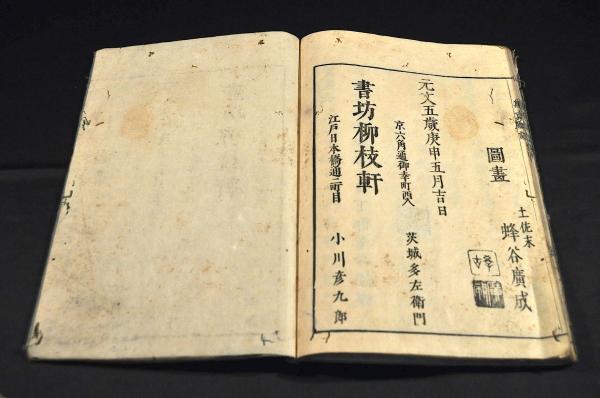 圖畫
土佐末
蜂谷廣成
元文五歳庚申五月吉日
京六角通御幸町西入
茨城多左衛門
書坊柳枝軒
江戸日本橋通三町目
小川彦九郎